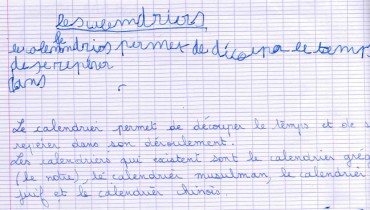 les calendriers
le calendrios permet de découpa le temps
de se repérer
dans
Le calendrier permet de découper le temps et de s
repérer dans son déroulement.
Les calendriers qui existent sont le calendrier grég
(le notre), le calendrier musulman, le calendrier
juif et le calendrier chinois.